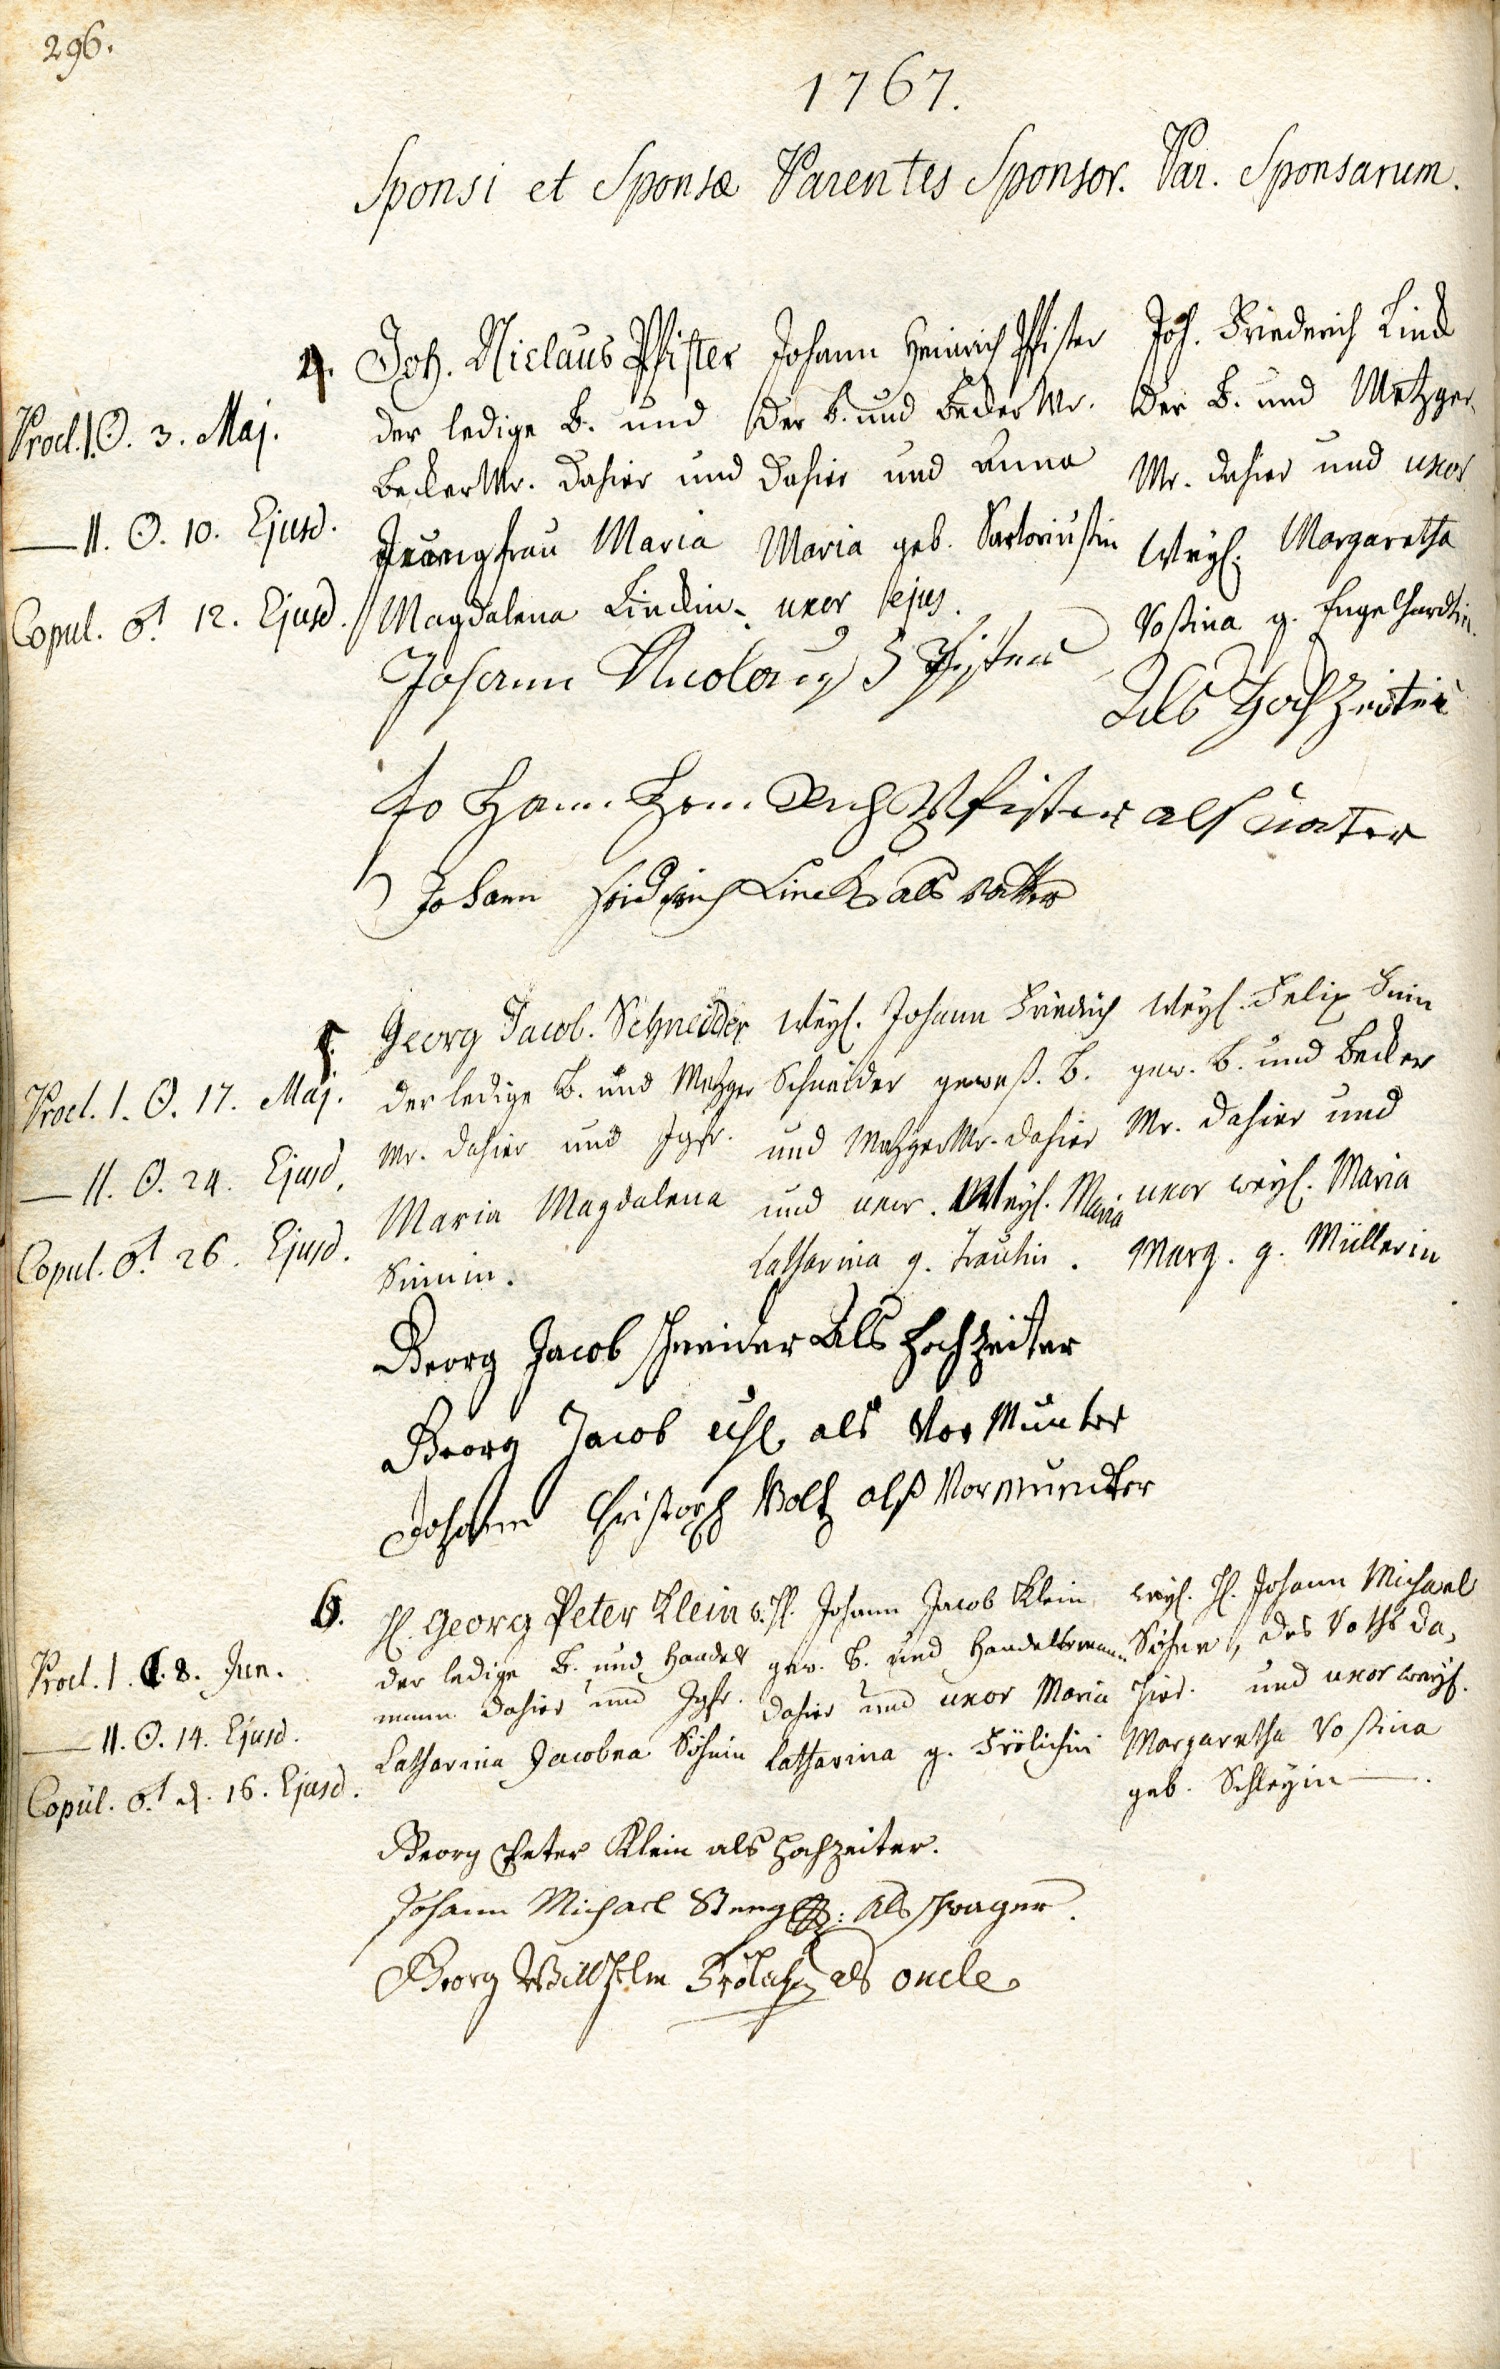 296.
1767.
Sponsi et Sponsæ Parentes Sponsor. Par. Sponsarum.
4.
Procl. I. ☉. 3. Maj.
— II. ☉. 10. Ejusd.
Copul. ♂. 12. Ejusd.
Joh. Niclaus Pfister
der ledige B. und
Becker Mr. dahier und
Jungfrau Maria
Magdalena Linckin.
Johann Heinrich Pfister
der B. und Becker Mr.
dahier und Anna
Maria geb. Sartoriussin
uxor ejus.
Joh. Friederich Linck
der B. und Metzger
Mr. dahier und uxor
weyl. Margaretha
Rosina g. Engelhardtin.
Johann Nicolaus Pfister
Als Hochzeiter
Johann Henrich Pfister als vater
Johann Fridrich Linck als vatter
5.
Procl. I. ☉. 17. Maj.
— II. ☉. 24. Ejusd.
Copul. ♂. 26. Ejusd.
Georg Jacob Schneider
der ledige B. und Metzger
Mr. dahier und Jgfr.
Maria Magdalena
Weyl. Johann Friedrich
Schneider geweß. B.
und Metzger Mr. dahier
und uxor. Weyl. Maria
Catharina g.
Weyl. Felix
gew. B. und Becker
Mr. dahier und
uxor weyl. Maria
Marg. g. Müllerin
Georg Jacob schneider Als hochzeiter
Georg Jacob als Vor Munter
Johann Christoph Voltz alß Vormundter
6.
Procl. I. ☾. 8. Jun.
— II. ☉. 14. Ejusd.
Copul. ♂. d. 16. Ejusd.
H. Georg Peter Klein
der ledige B. und Handels
mann dahier und Jgfr.
Catharina Jacobea Söhnin
H. Johann Jacob Klein
gew. B. und Handelsmann
dahier und uxor Maria
Catharina g. Frölichin
weyl. H. Johann Michael
Söhne, des Raths da,
hier. und uxor weyl.
Margaretha Rosina
geb. Schleyin —.
Georg Peter Klein als Hochzeiter.
Johann Michael Als schwager.
Georg Willhelm Frölich als oncle